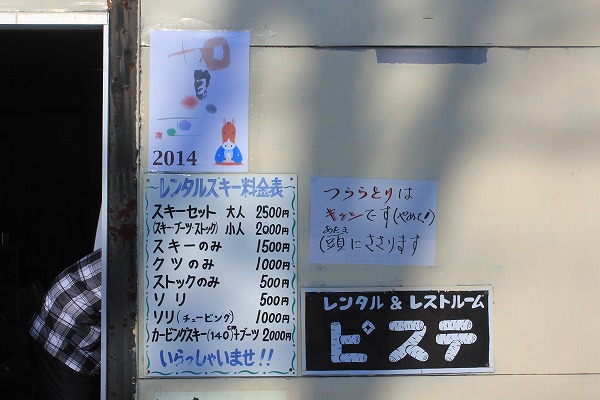 賀正
2014
レンタルスキー料金表
スキーセット 大人 2500円
(スキー・ブーツ・ストック) 小人 2000円
スキーのみ 1500円
クツのみ 1000円
ストックのみ 500円
ソリ 500円
ソリ(チュービング) 1000円
カービングスキー(140cm)+ブーツ 2000円
いらっしゃいませ!!
つららとりは
キケンです(やめて!)
(頭にささります
あたま
レンタル & レストルーム
ピステ